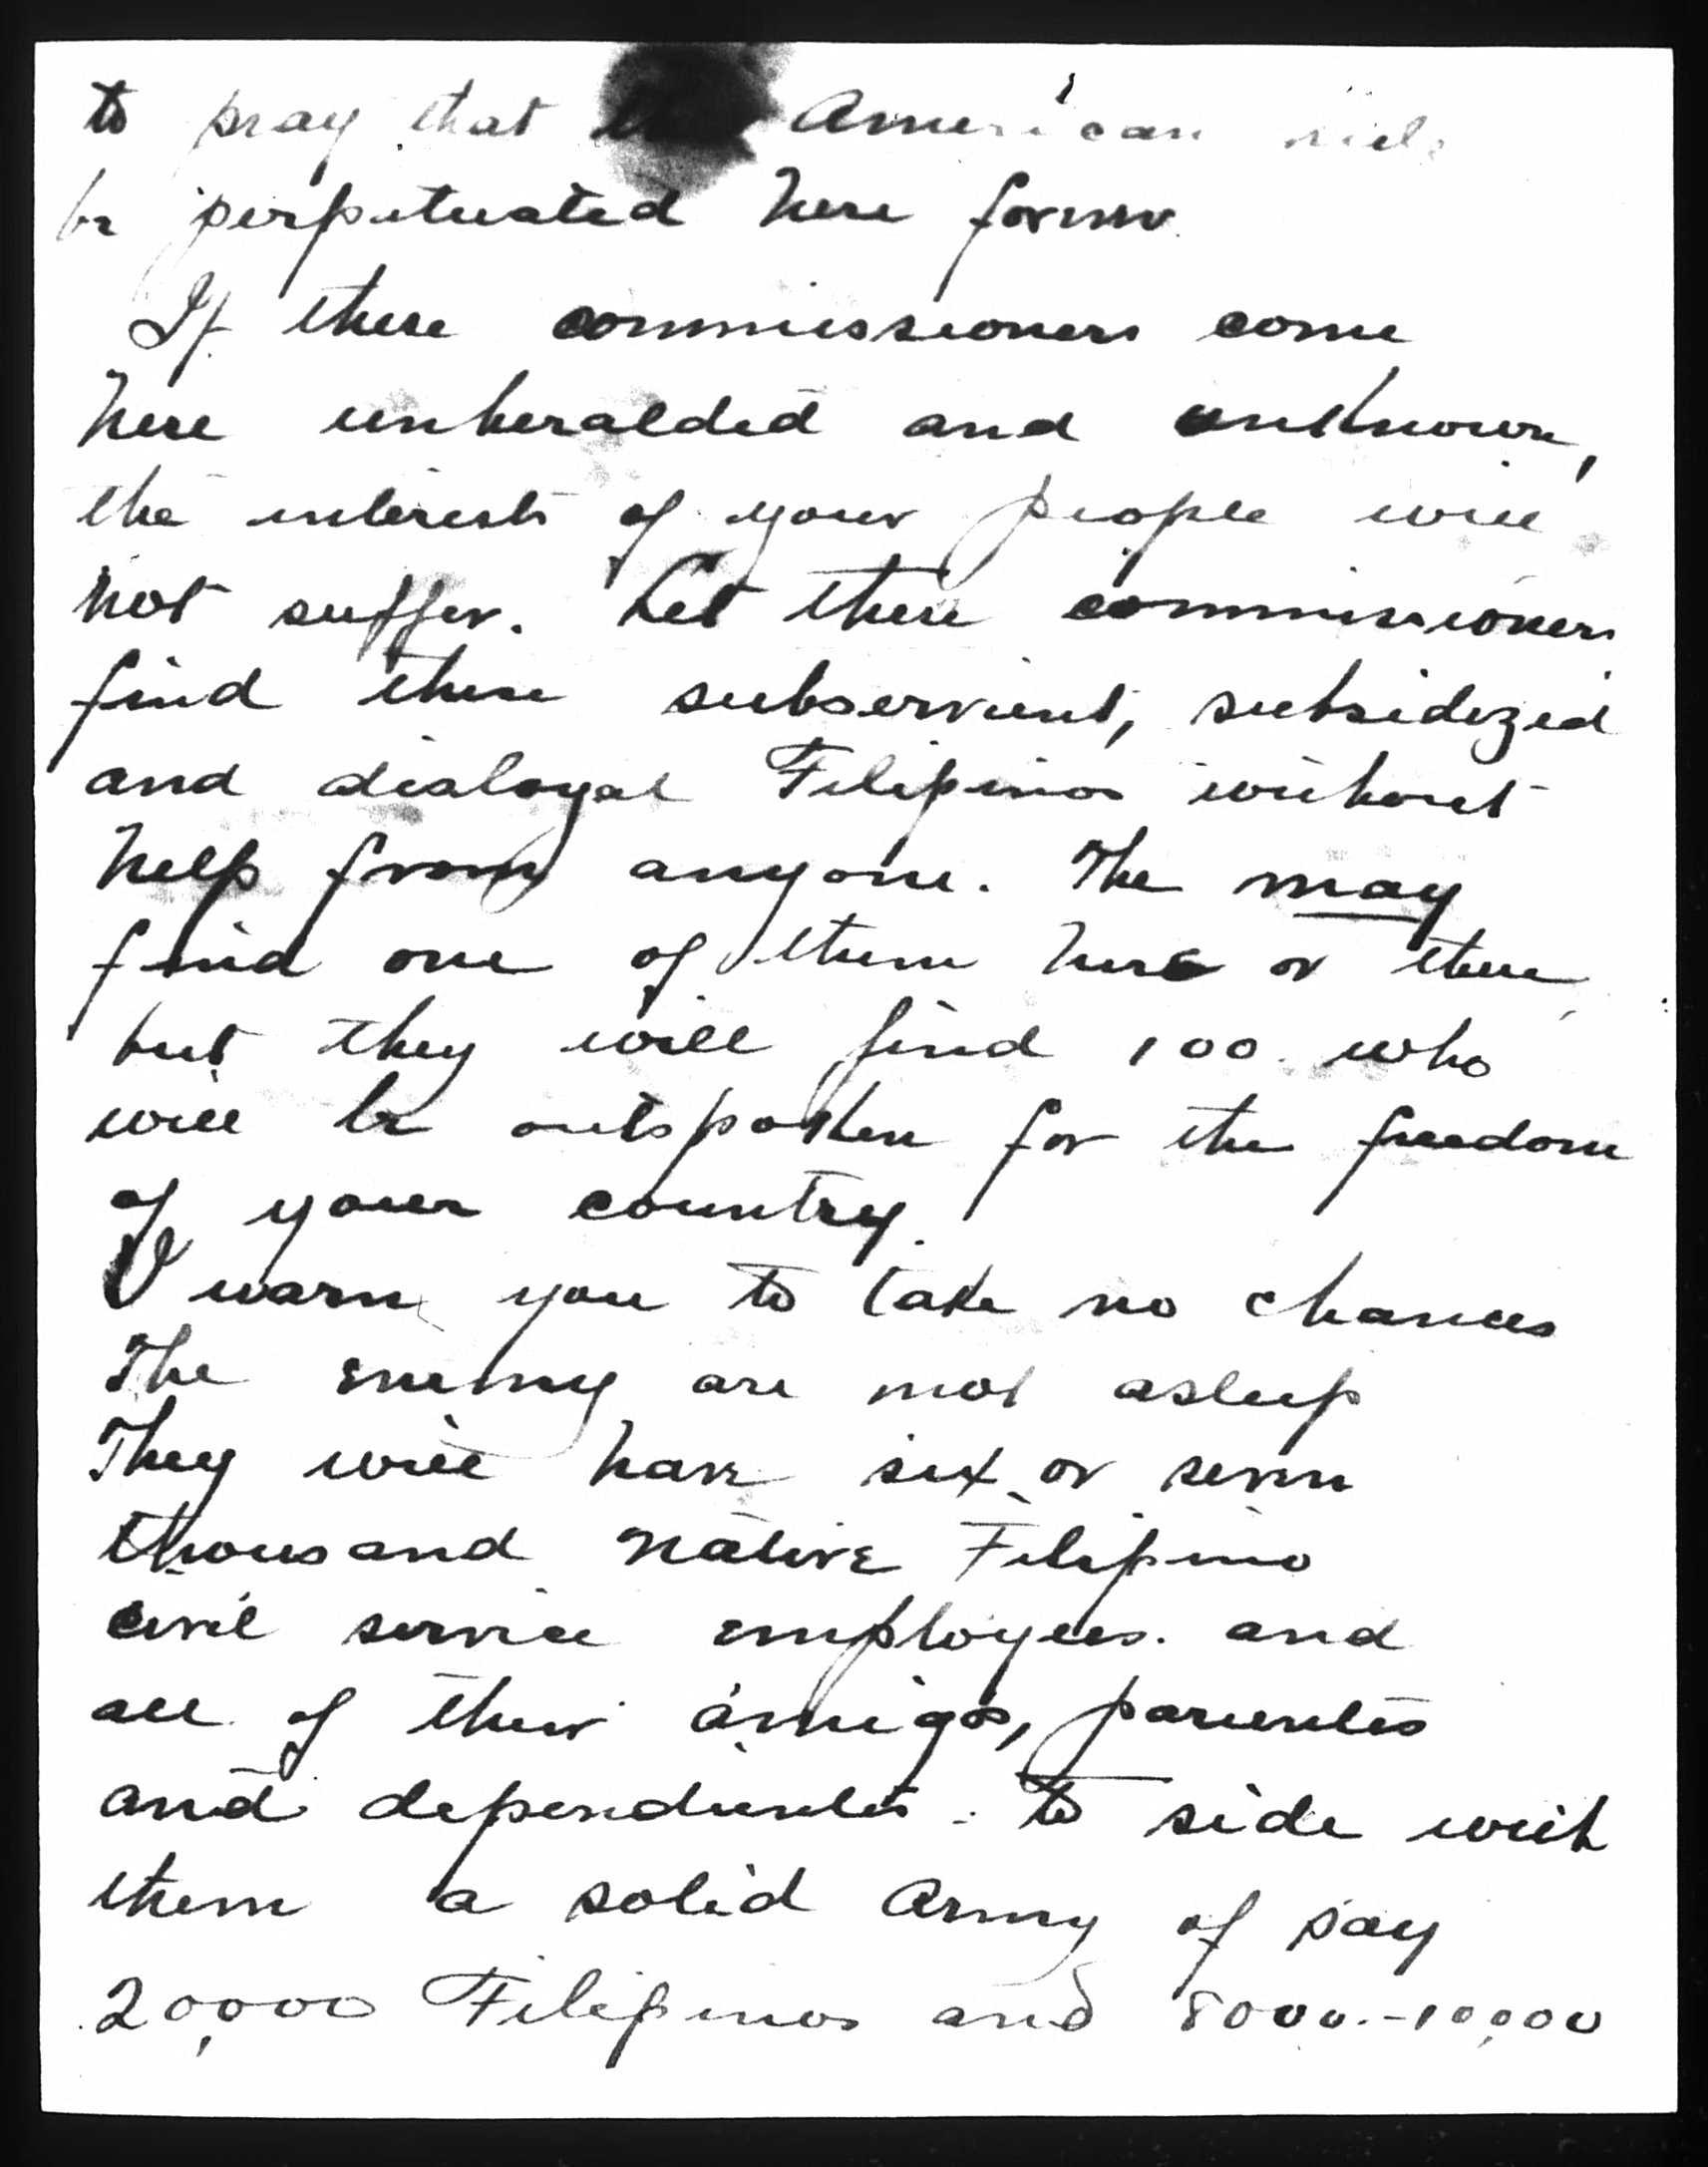 to pray that the American rule
be perpetuated here forever.
If these commissioners come
here unheralded and unknown,
the interests of your people will
not suffer. Let these commissioners
find these subservient, subsidized
and disloyal Filipinos without
help from anyone. The may
find one of them here or there,
but they will find 100 who
will be outspoken for the freedom
of your country.
I warn you to take no chances
The enemy are not asleep
They will have six or seven
thousand native Filipino
civil service employees. and
all of their amigos, parientes
and dependientes. to side with
them a solid army of say
20,000 Filipinos and 8000.-10,000